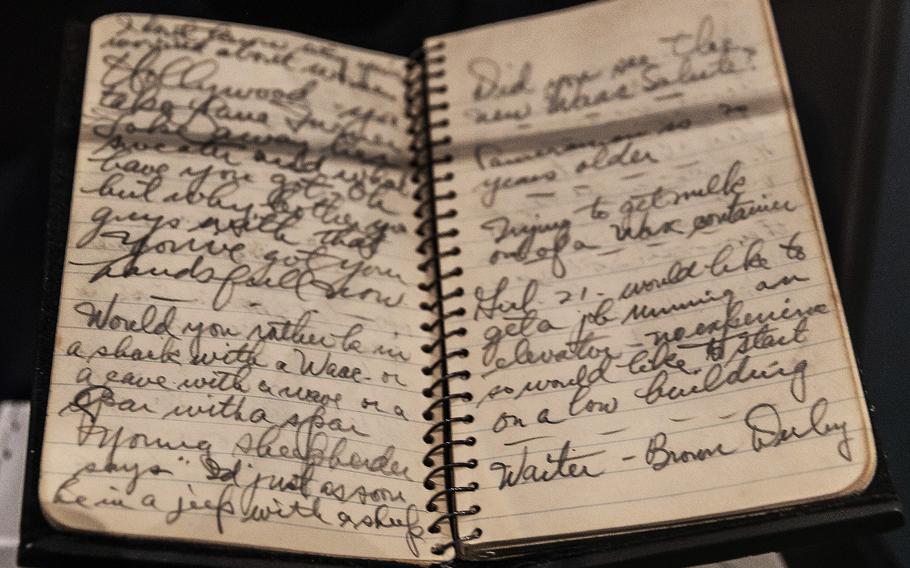 worried about what
Hollywood - you
take Lana Turner
away
sweater and what
have you got - oh
but why bother you
guys with that
You've got your
hands full now
Would you rather be in
a shack with a Wac - or
a cave with a wave or a
Spar with a spar
Young sheepherder
says "I'd just as soon
be in a jeep with a sheep
Did you see the
new Waac Salute?
years older
Trying to get milk
out of a wax container
Girl 21 - would like to
get a job running an
elevator - no experience
so would like to start
on a low building
Waiter - Brown Derby